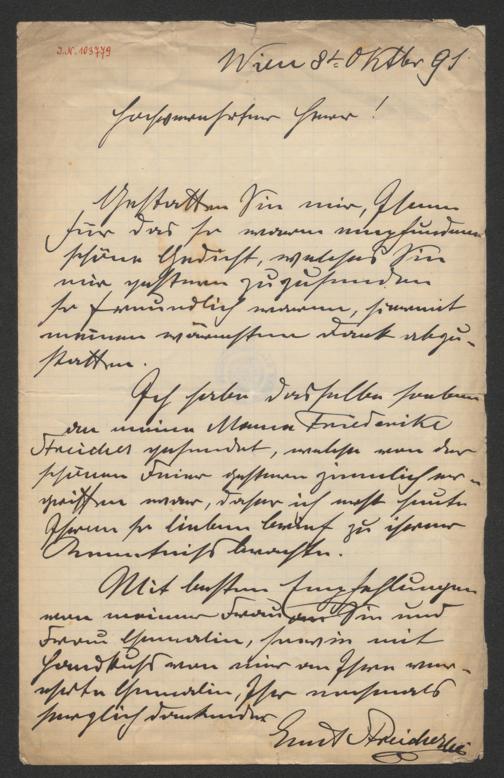 J.N. 103779
Wien 8t Oktbr 91
Hochverehrter Herr!
Gestatten Sie mir, Ihnen
für das so warm empfundene
schöne Gedicht, welches Sie
mir gestern zuzusenden
so freundlich waren, hiermit
meinen wärmsten Dank abzu-
statten.
Ich habe dasselbe soeben
an meine Mama Friederike
Streicher gesendet, welche von der
schönen Feier gestern ziemlich er-
griffen war, daher ich erst heute
Ihren so lieben Brief zu ihrer
Kenntniß brachte.
Mit besten Empfehlungen
von meiner Frau an Sie und
Frau Gemalin, sowie mit
Handkuss von mir an Ihre ver-
ehrte Gemalin, Ihr nochmals
herzlich dankender
Emil Streicher